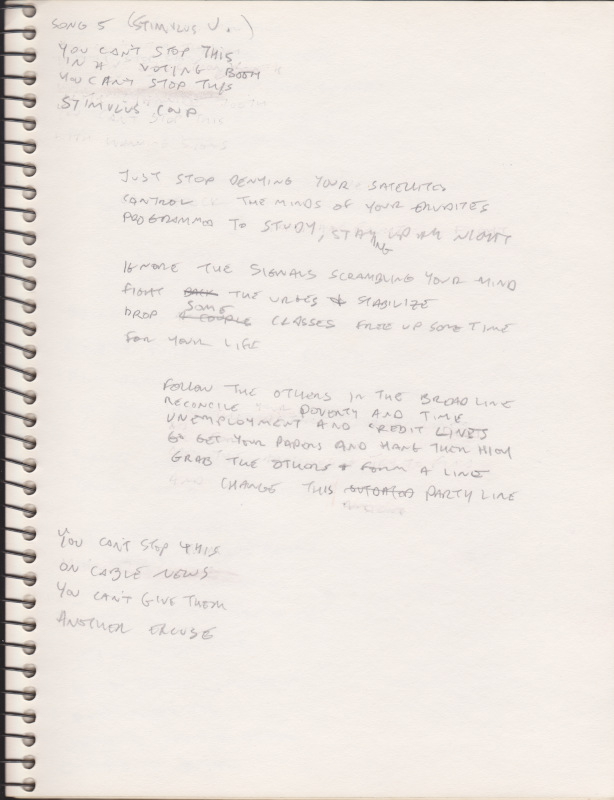 SONG 5 (STIMULUS V.)
YOU CAN'T STOP THIS
IN A VOTING BOOTH
YOU CAN'T STOP THIS
STIMULUS COUP
JUST STOP DENYING YOUR SATELLITES
CONTROL THE MINDS OF YOUR ERUDITES
PROGRAMMED TO STUDY, STAYING UP ALL NIGHT
IGNORE THE SIGNALS SCRAMBLING YOUR MIND
FIGHT BACK THE URGES & STABILIZE
DROP A COUPLE SOME CLASSES FREE UP SOME TIME
FOR YOUR LIFE
FOLLOW THE OTHERS IN THE BREAD LINE
RECONCILE POVERTY AND TIME
UNEMPLOYMENT AND CREDIT LINES
GO GET YOUR PAPERS AND HANG THEM HIGH
GRAB THE OTHERS & FORM A LINE
CHANGE THIS OUTDATED PARTY LINE
YOU CAN'T STOP THIS
ON CABLE NEWS
YOU CAN'T GIVE THEM
ANOTHER EXCUSE